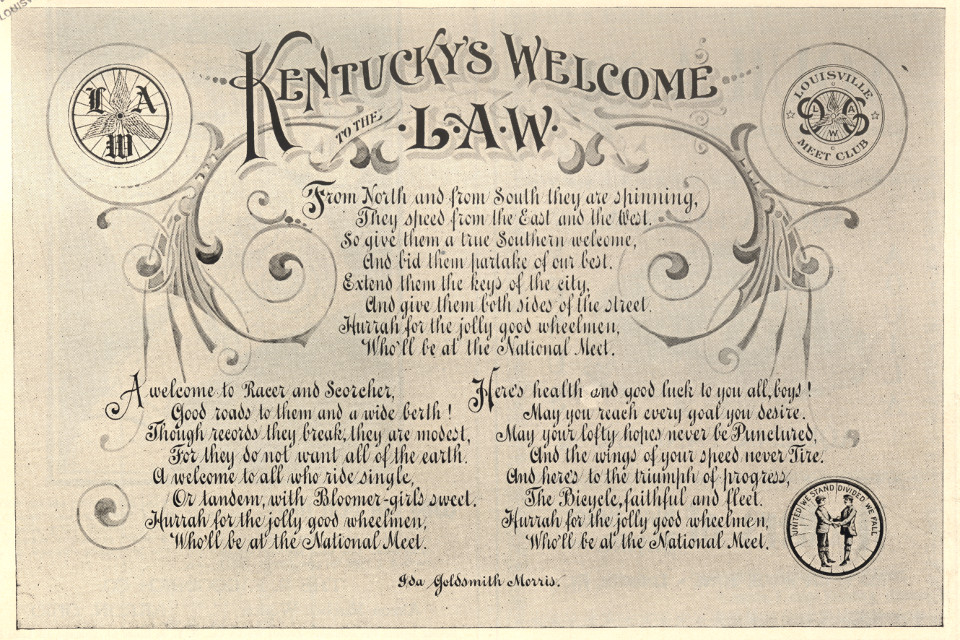 LOUISV
L A W
KENTUCKY'S WELCOME
TO THE
·L·A·W·
LOUISVILLE
96
L A W
MEET CLUB
From North and from South they are spinning,
They speed from the East and the West.
So give them a true Southern welcome,
And bid them partake of our best.
Extend them the keys of the city,
And give them both sides of the street.
Hurrah for the jolly good wheelmen,
Who'll be at the National Meet.
A welcome to Racer and Scorcher,
Good roads to them and a wide berth!
Though records they break, they are modest,
For they do not want all of the earth.
A welcome to all who ride single,
Or tandem, with Bloomer-girls sweet.
Hurrah for the jolly good wheelmen,
Who'll be at the National Meet.
Here's health and good luck to you all, boys!
May you reach every goal you desire.
May your lofty hopes never be Punctured,
And the wings of your speed never Tire.
And here's to the triumph of progress,
The Bicycle, faithful and fleet.
Hurrah for the jolly good wheelmen,
Who'll be at the National Meet.
UNITED WE STAND DIVIDED WE FALL
Ida Goldsmith Morris.